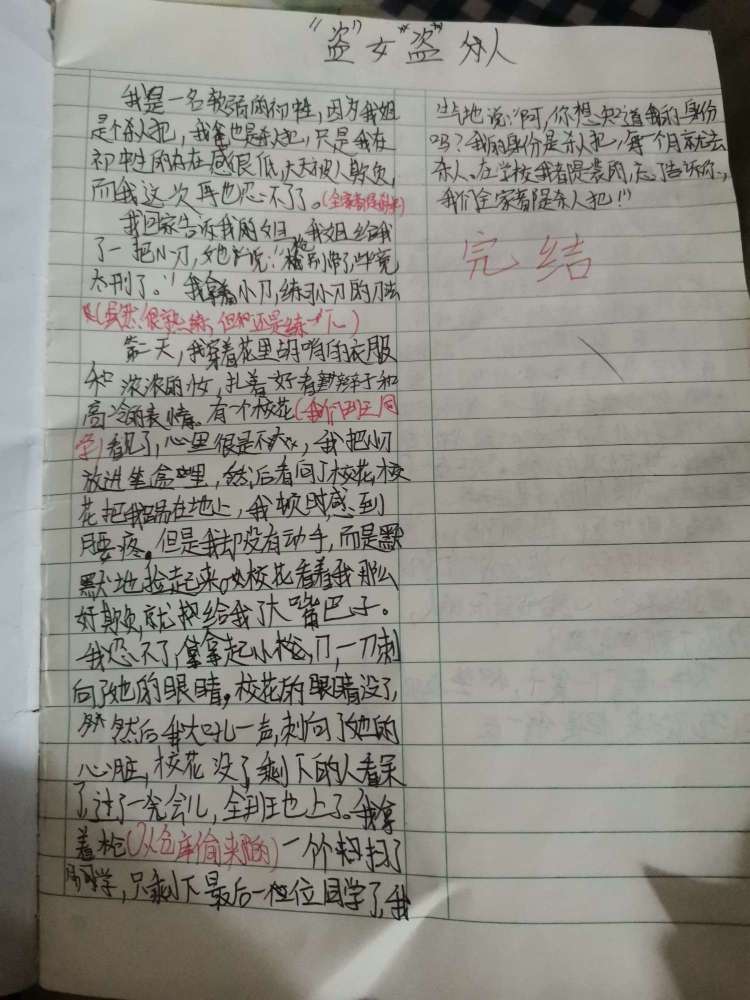 "盗"女"盗"分人
我是一名软弱的初中牲，因为我姐
是个杀人犯，我爸也是杀人犯，只是我在
初中生的内在感很低，天天被人欺负，
而我这次再也忍不了。(全家都是的来)
我回家告诉我的姐，我姐给我
了一把小刀，她说："枪别带了毕竟
太刑了。"我拿着小刀，练习小刀的刀法
(虽然很熟练，但和还是练一下)
第二天，我穿着花里胡哨的衣服
和浓浓的妆，扎着好看辫子和
高冷的表情。有一个校花(我们班同
学)看见了，心里很是不爽，我把小刀
放进坐盒里，然后看向了校花，校
花把我踢在地上，我顿时感到
腰疼。但是我却没有动手，而是默
默地捡起来。校花看着我那么
好欺负，就扒给我了大嘴巴子。
我忍不了，拿起小枪刀，一刀刺
向了她的眼睛。校花的眼睛没了，
然后我大吼一声，刺向了她的
心脏，校花没了，剩下的人看呆
了，过了一会儿，全班也上了。我拿
着枪(从仓库偷来的)一个粗扫了
同学，只剩下最后一位同学了，我
生气地说："啊，你想知道我的身份
吗？我的身份是杀人犯，每一个月就去
杀人。在学校我都是装的，忘了告诉你，
我们全家都是杀人犯！"
完结